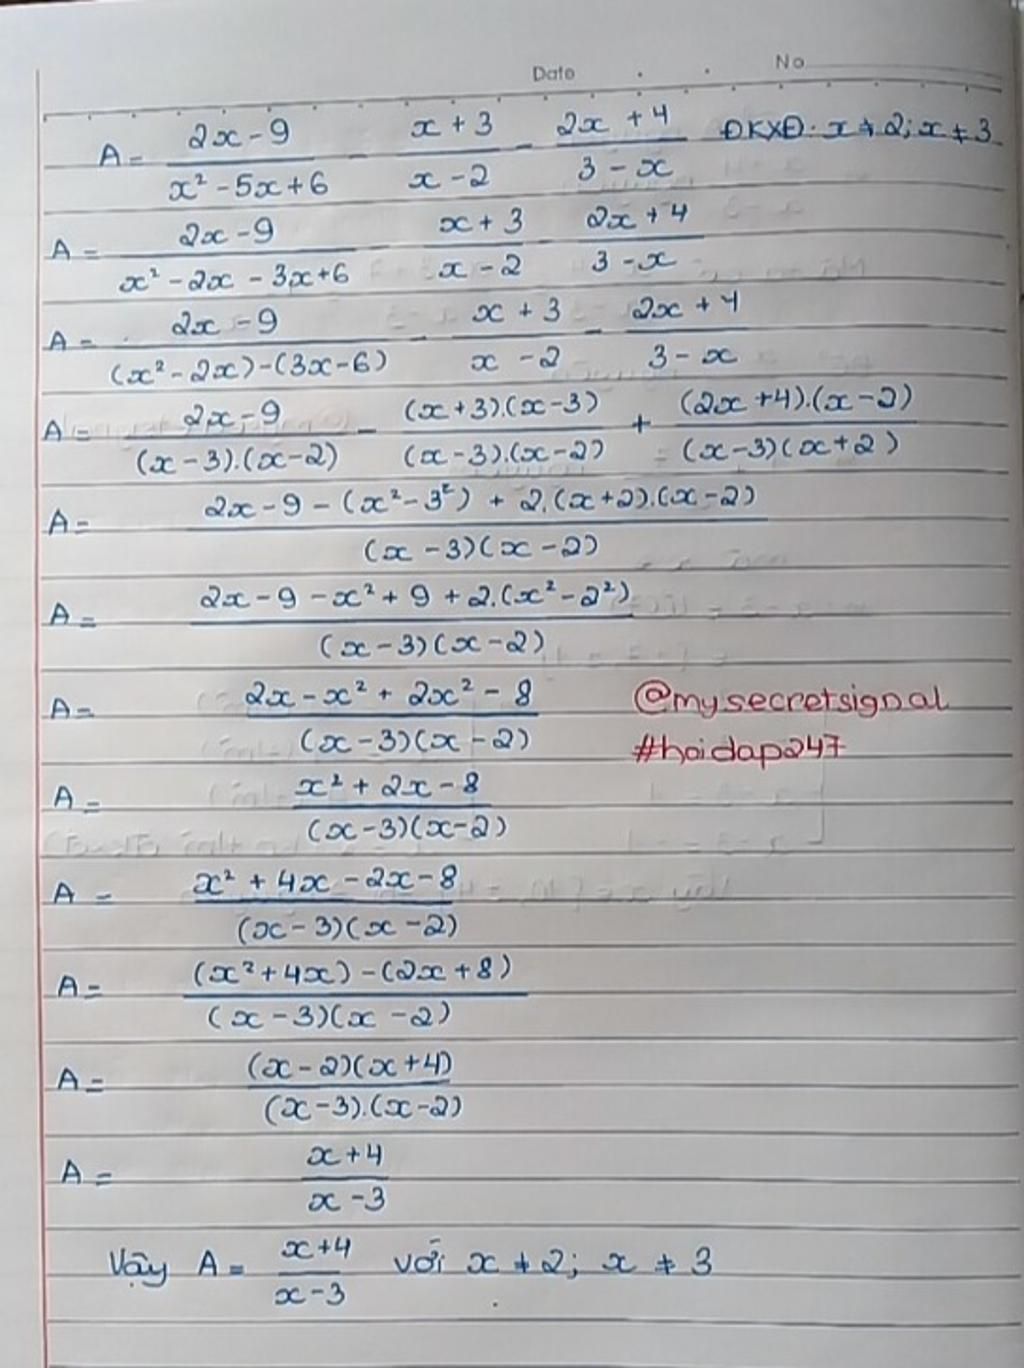 Date No
A = (2x - 9)/(x² - 5x + 6) - (x + 3)/(x - 2) - (2x + 4)/(3 - x) ĐKXĐ: x ≠ 2; x ≠ 3
A = (2x - 9)/(x² - 2x - 3x + 6) - (x + 3)/(x - 2) - (2x + 4)/(3 - x)
A = (2x - 9)/((x² - 2x) - (3x - 6)) - (x + 3)/(x - 2) - (2x + 4)/(3 - x)
A = (2x - 9)/((x - 3).(x - 2)) - ((x + 3).(x - 3))/((x - 3).(x - 2)) + ((2x + 4).(x - 2))/((x - 3)(x + 2))
A = (2x - 9 - (x² - 3²) + 2.(x + 2).(x - 2))/((x - 3)(x - 2))
A = (2x - 9 - x² + 9 + 2.(x² - 2²))/((x - 3)(x - 2))
A = (2x - x² + 2x² - 8)/((x - 3)(x - 2)) @mysecretsignal
#hoidap247
A = (x² + 2x - 8)/((x - 3)(x - 2))
A = (x² + 4x - 2x - 8)/((x - 3)(x - 2))
A = ((x² + 4x) - (2x + 8))/((x - 3)(x - 2))
A = ((x - 2)(x + 4))/((x - 3).(x - 2))
A = (x + 4)/(x - 3)
Vậy A = (x + 4)/(x - 3) với x ≠ 2; x ≠ 3